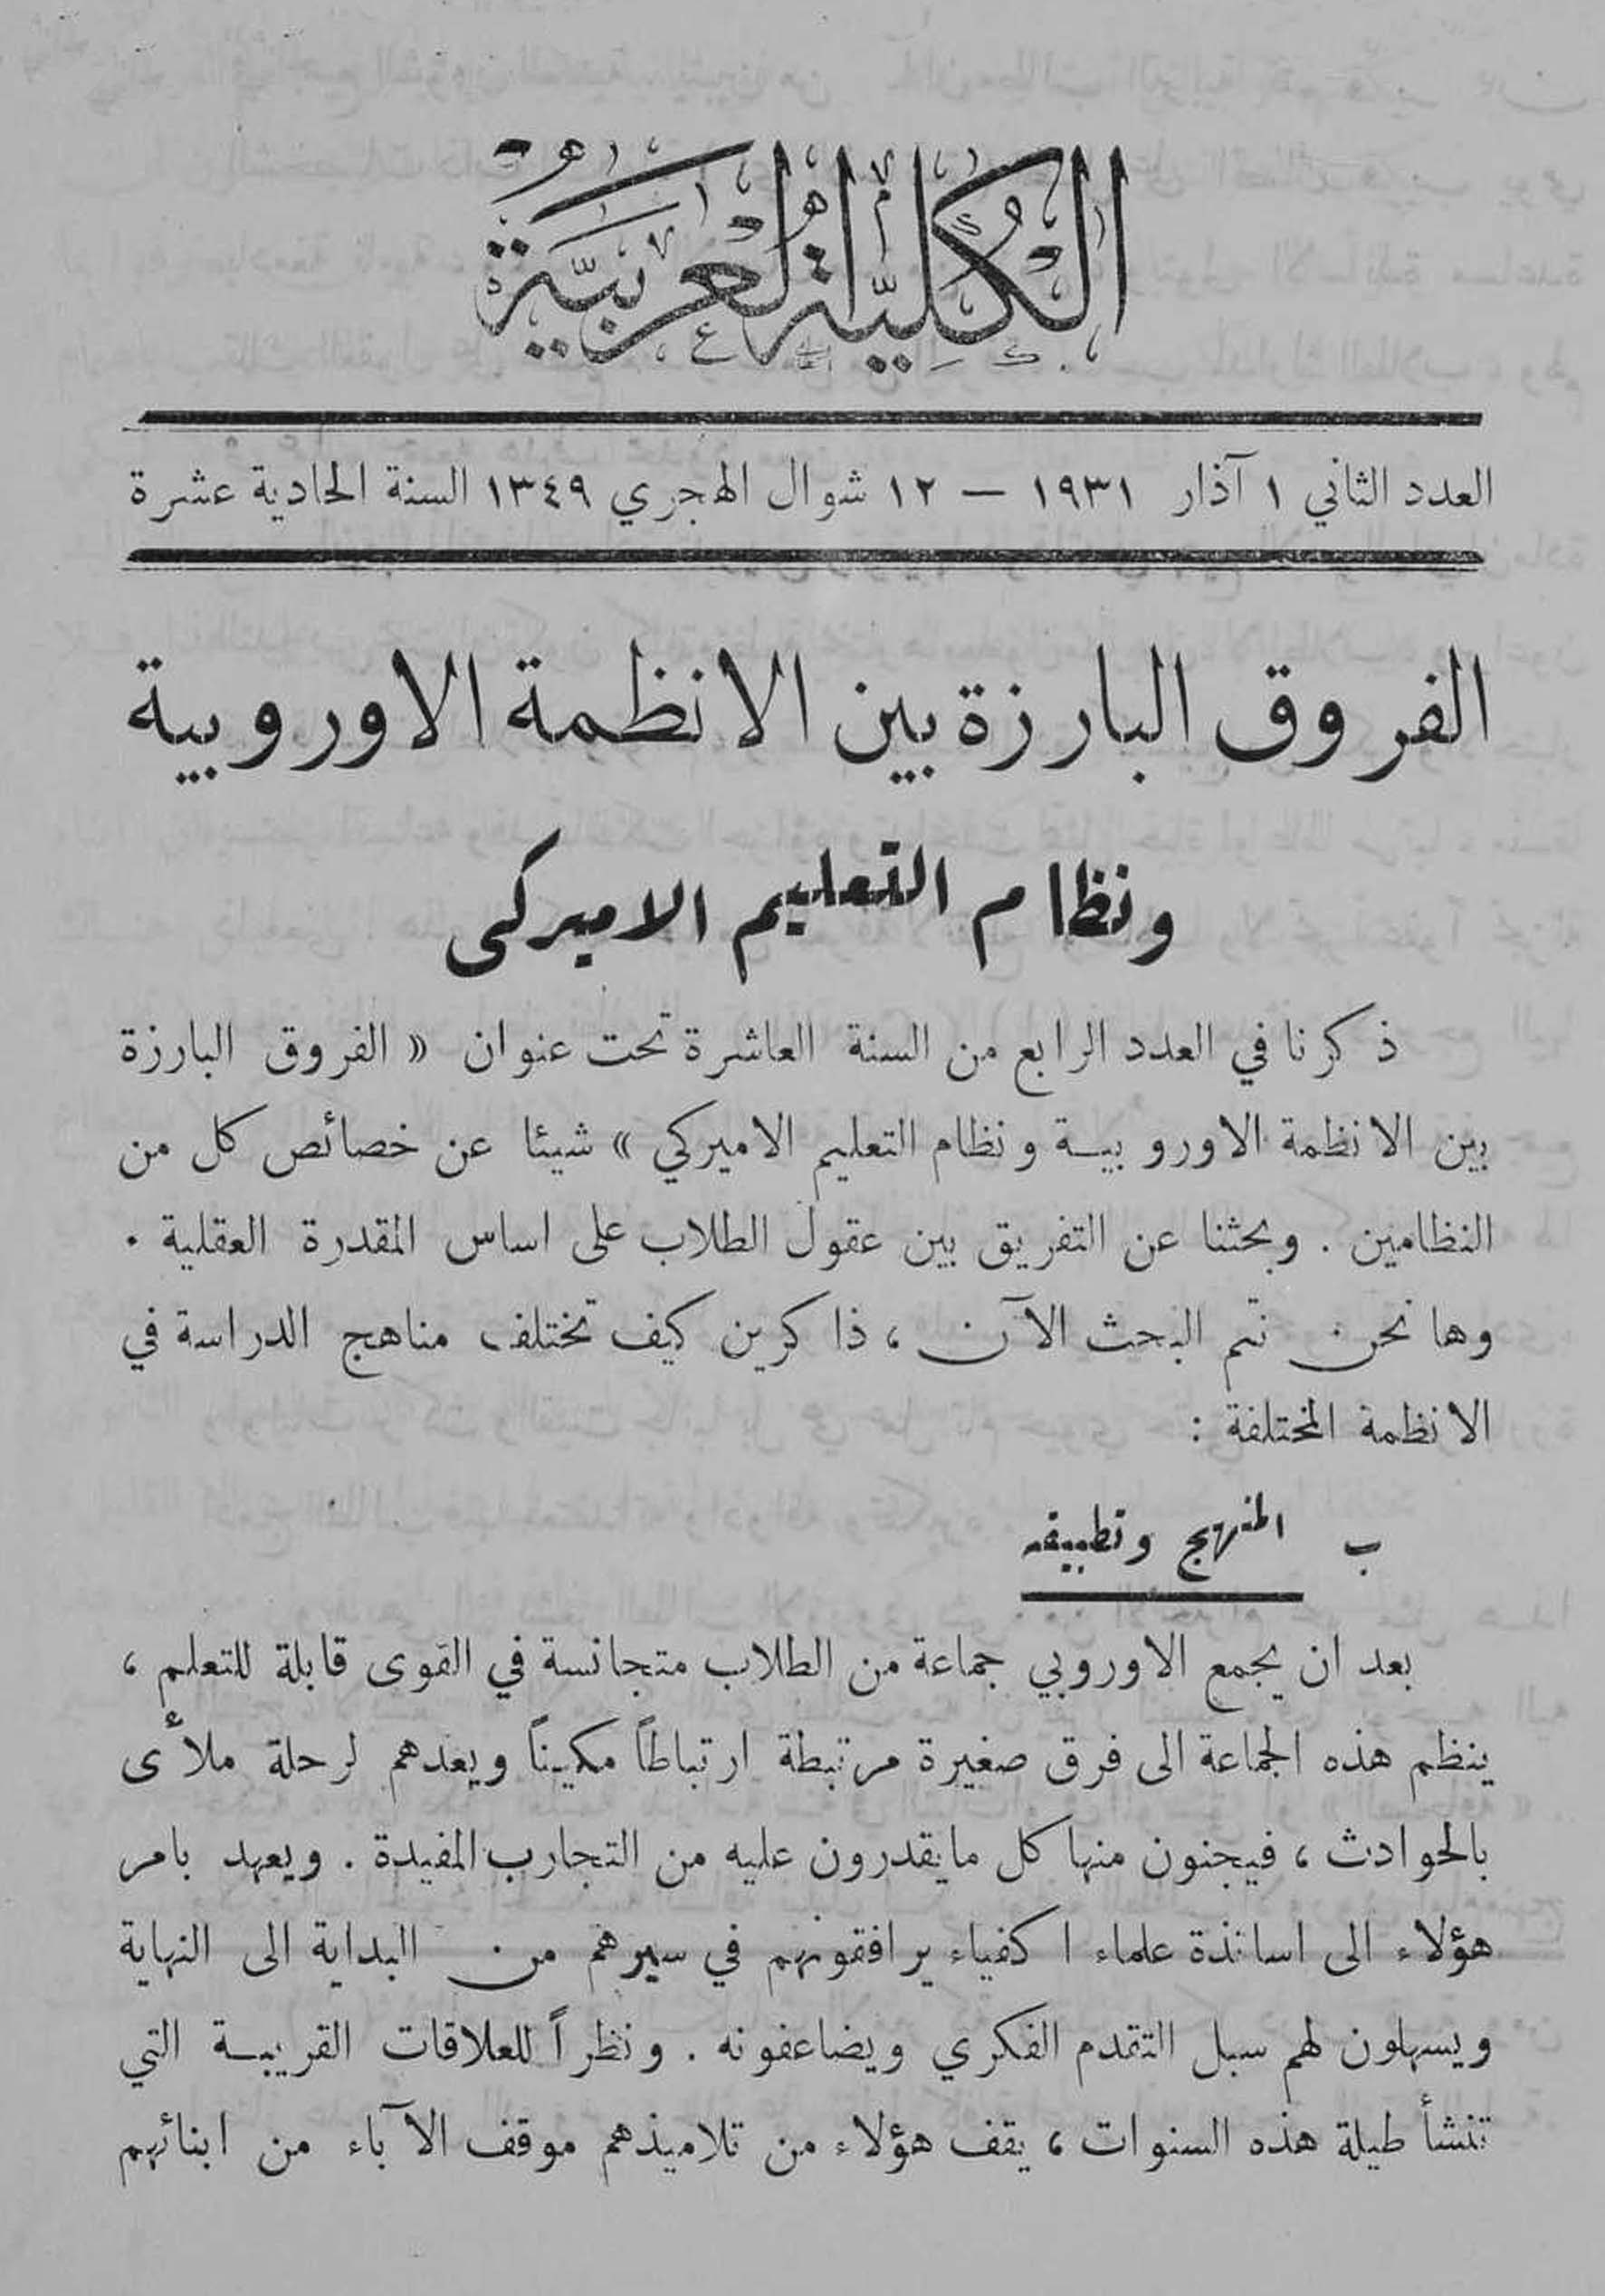 الكلية العربية
العدد الثاني ١ آذار ١٩٣١ — ١٢ شوال الهجري ١٣٤٩ السنة الحادية عشرة
الفروق البارزة بين الانظمة الاوروبية
ونظام التعليم الاميركي
ذكرنا في العدد الرابع من السنة العاشرة تحت عنوان « الفروق البارزة
بين الانظمة الاوروبيـة ونظام التعليم الاميركي » شيئا عن خصائص كل من
النظامين . وبحثنا عن التفريق بين عقول الطلاب على اساس المقدرة العقلية .
وها نحن نتم البحث الآن ، ذاكرين كيف تختلف مناهج الدراسة في
الانظمة المختلفة :
ب المنهج وتطبيقه
بعد ان يجمع الاوروبي جماعة من الطلاب متجانسة في القوى قابلة للتعلم ،
ينظم هذه الجماعة الى فرق صغيرة مرتبطة ارتباطاً مكيناً ويعدهم لرحلة ملأى
بالحوادث ، فيجنون منها كل مايقدرون عليه من التجارب المفيدة . ويعهد بامر
هؤلاء الى اساتذة علماء اكفياء يرافقونهم في سيرهم من البداية الى النهاية
ويسهلون لهم سبل التقدم الفكري ويضاعفونه . ونظراً للعلاقات القريبـة التي
تنشأ طيلة هذه السنوات ، يقف هؤلاء من تلاميذهم موقف الآباء من ابنائهم